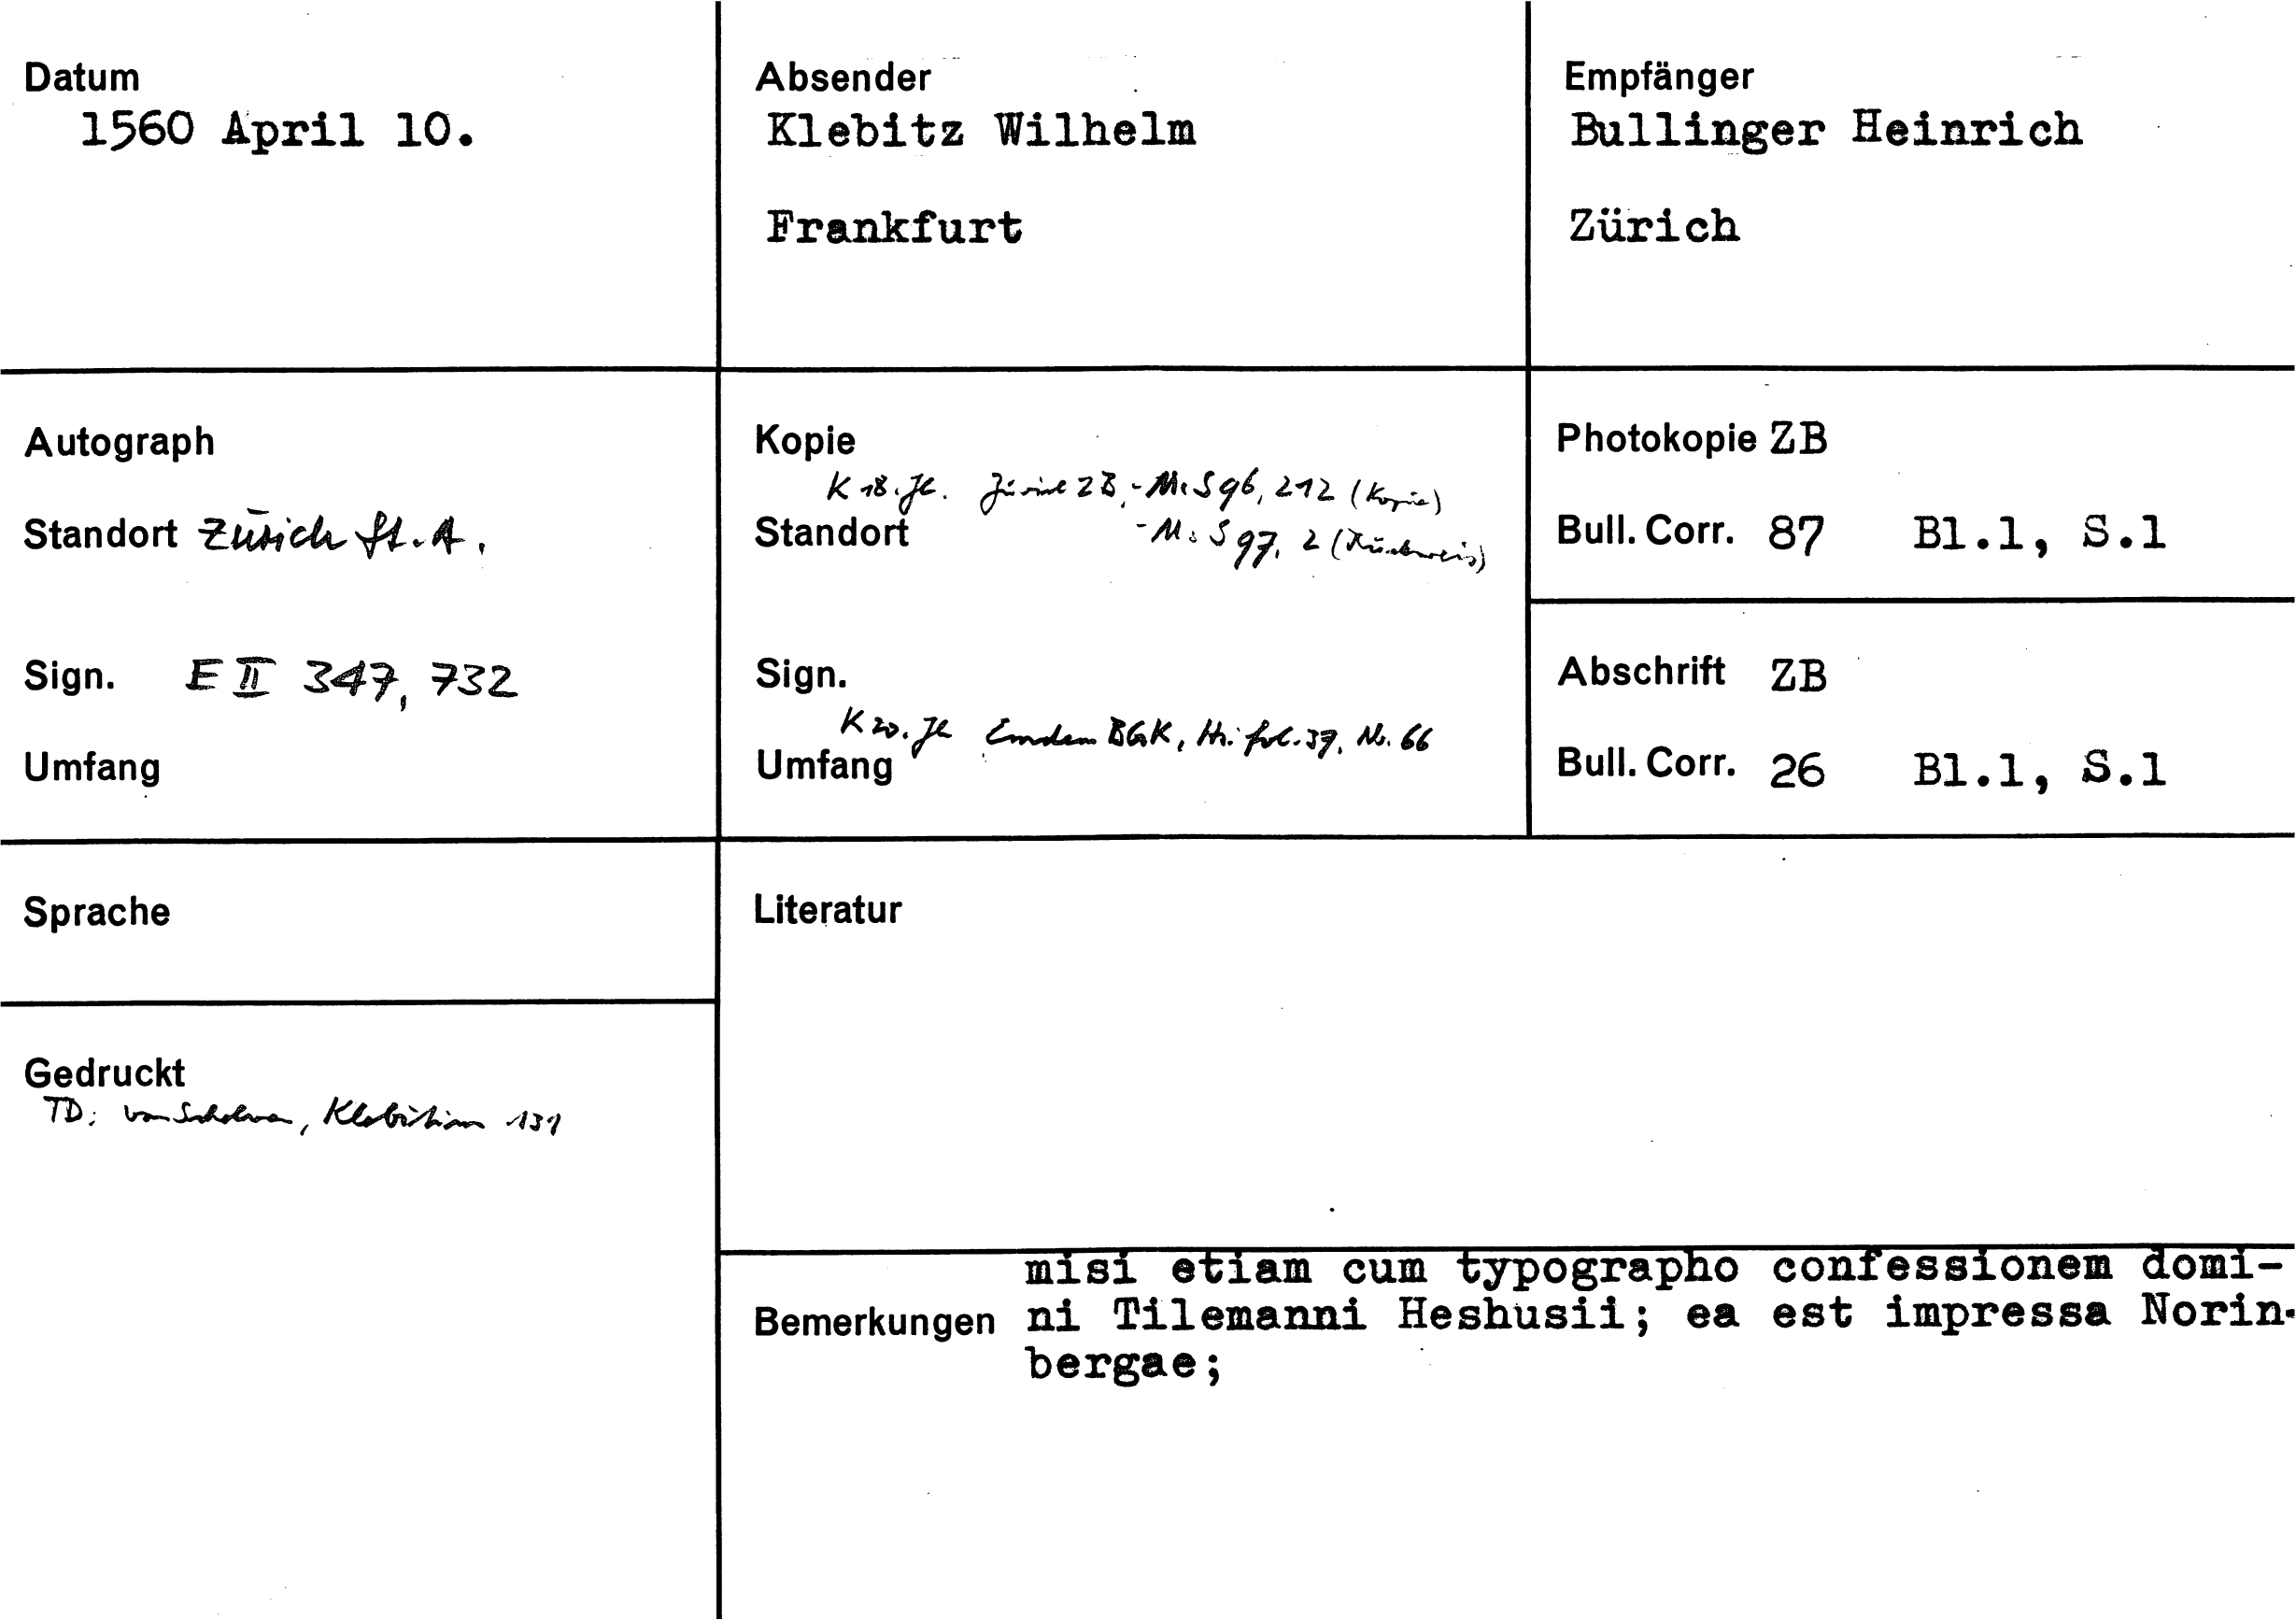 Datum
1560 April 10.
Absender
Klebitz Wilhelm
Frankfurt
Empfänger
Bullinger Heinrich
Zürich
Autograph
Standort Zürich St.A.
Sign. E II 347, 732
Umfang
Kopie
K 18. Jh. Zürich ZB, - Ms S 96, 212 (Kopie)
Standort - Ms S 97, 2 (Rückweis)
Sign.
K 20. Jh Emden BGK, Hs. fol. 37, Nr. 66
Umfang
Photokopie ZB
Bull. Corr. 87 Bl.1, S.1
Abschrift ZB
Bull. Corr. 26 Bl.1, S.1
Sprache
Gedruckt
TD: von
Literatur
misi etiam cum typographo confessionem domi-
Bemerkungen ni Tilemanni Heshusii; ea est impressa Norin-
bergae;